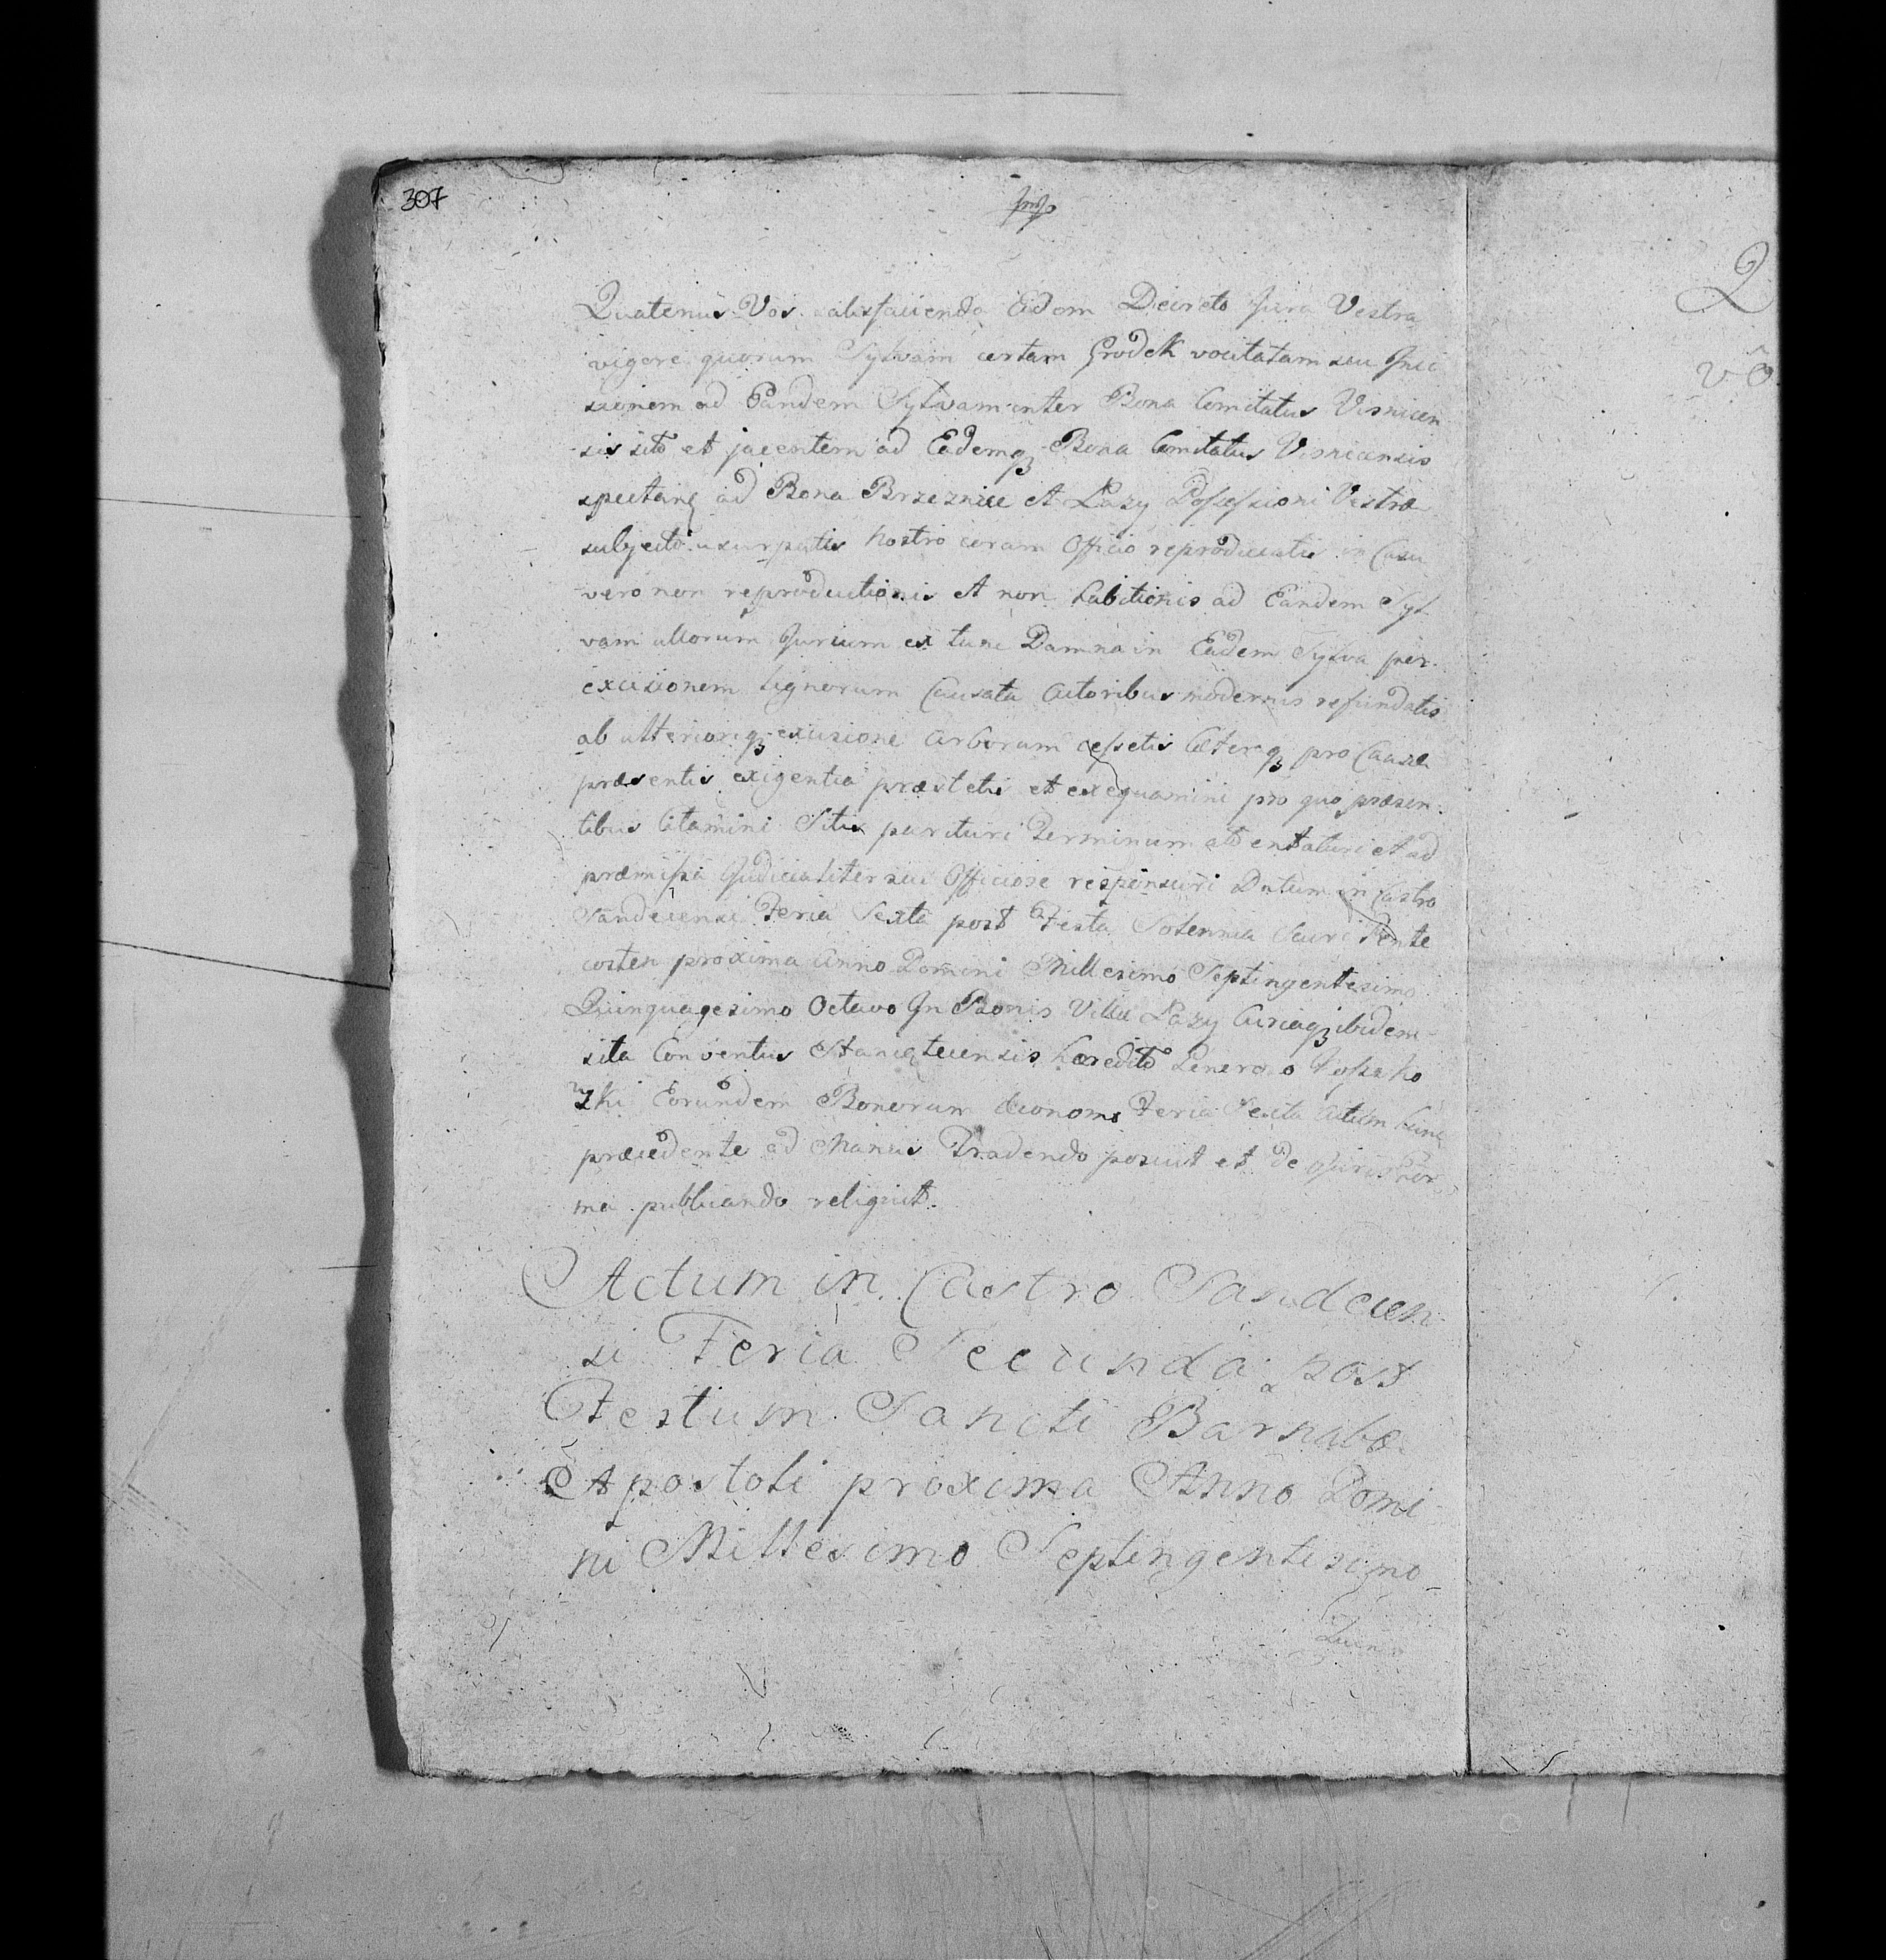 307
Quatenus Vos satisfaciendo Eidem Decreto Jura Vestra
vigore quorum Sylvam certam Grodek vocitatam seu Inci
sionem ad Eandem Sylvam inter Bona Comitatus Visnicen
sis sitt et jacentem ad Eademq Bona Comitatus Visnicensis
spectan ad Bona Brzeznice et Lazy Possessioni Vestræ
subjecta usurpatis nostro coram Officio reproducatis in Casu
vero non reproductionis et non habitionis ad Eandem Syl
vam ullorum Jurium ex tunc Damna in Eadem Sylva per
excisionem Lignorum Causata Actoribus modernis refundatis
ab ulterioriq excisione Arborum cessetis Cæteraq pro Causæ
præsentis exigentia præstetis et exequamini pro quo præsen
tibus Citamini Sitis parituri Terminum attentaturi et ad
præmissa Judicialiter seu Officiose responsuri Datum in Castro
Sandecensi Feria Sexta post Festa Solennia Sacri Pente
costen proxima Anno Domini Millesimo Septingentesimo
Quinquagesimo Octavo In Bonis Villæ Lazy Curiaq ibidem
sita Conventus Staniątecensis hæredit Generoso
Eorundem Bonorum Œconomo Feria Sexta Actum hunc
præcedente ad Manus Tradendo posuit et de Juris For
ma publicando reliquit.
Actum in Castro Sandecen
si Feria Secunda post
Festum Sancti Barnabæ
Apostoli proxima Anno Domi
ni Millesimo Septingentesimo
Quin
Q
vo